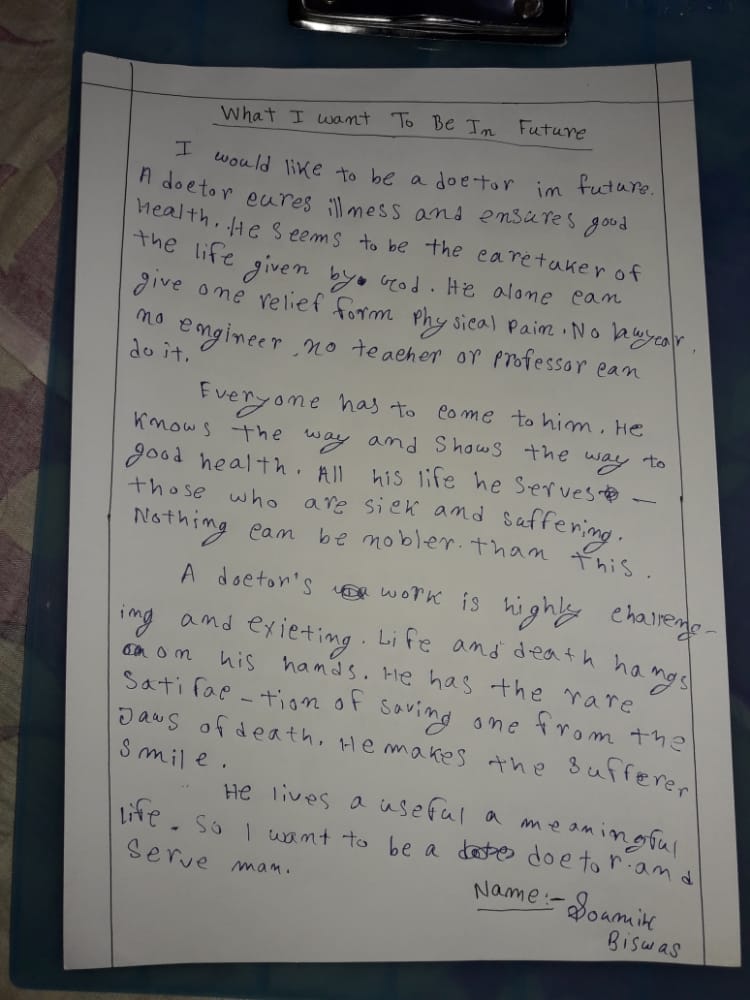 What I want To Be In Future
I would like to be a doctor in future.
A doctor cures illness and ensures good
Health. He seems to be the caretaker of
the life given by God. He alone can
give one relief form physical pain. No lawyear,
no engineer, no teacher or professor can
do it.
Everyone has to come to him. He
knows the way and shows the way to
good health. All his life he serves –
those who are sick and suffering.
Nothing can be nobler than this.
A doctor's work is highly challeng-
ing and exicting. Life and death hangs
on his hands. He has the rare
Satisfac-tion of saving one from the
Jaws of death. He makes the sufferer
Smile.
He lives a useful a meaningful
life. So I want to be a doctor and
Serve man.
Name:- Soumik
Biswas